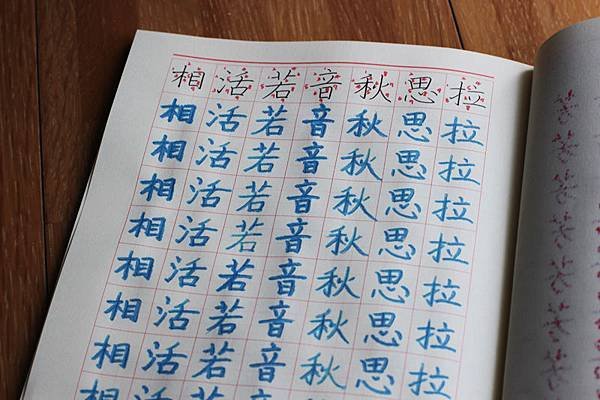 相活若音秋思拉
相活若音秋思拉
相活若音秋思拉
相活若音秋思拉
相活若音秋思拉
相活若音秋思拉
相活若音秋思拉
相活若音秋思拉